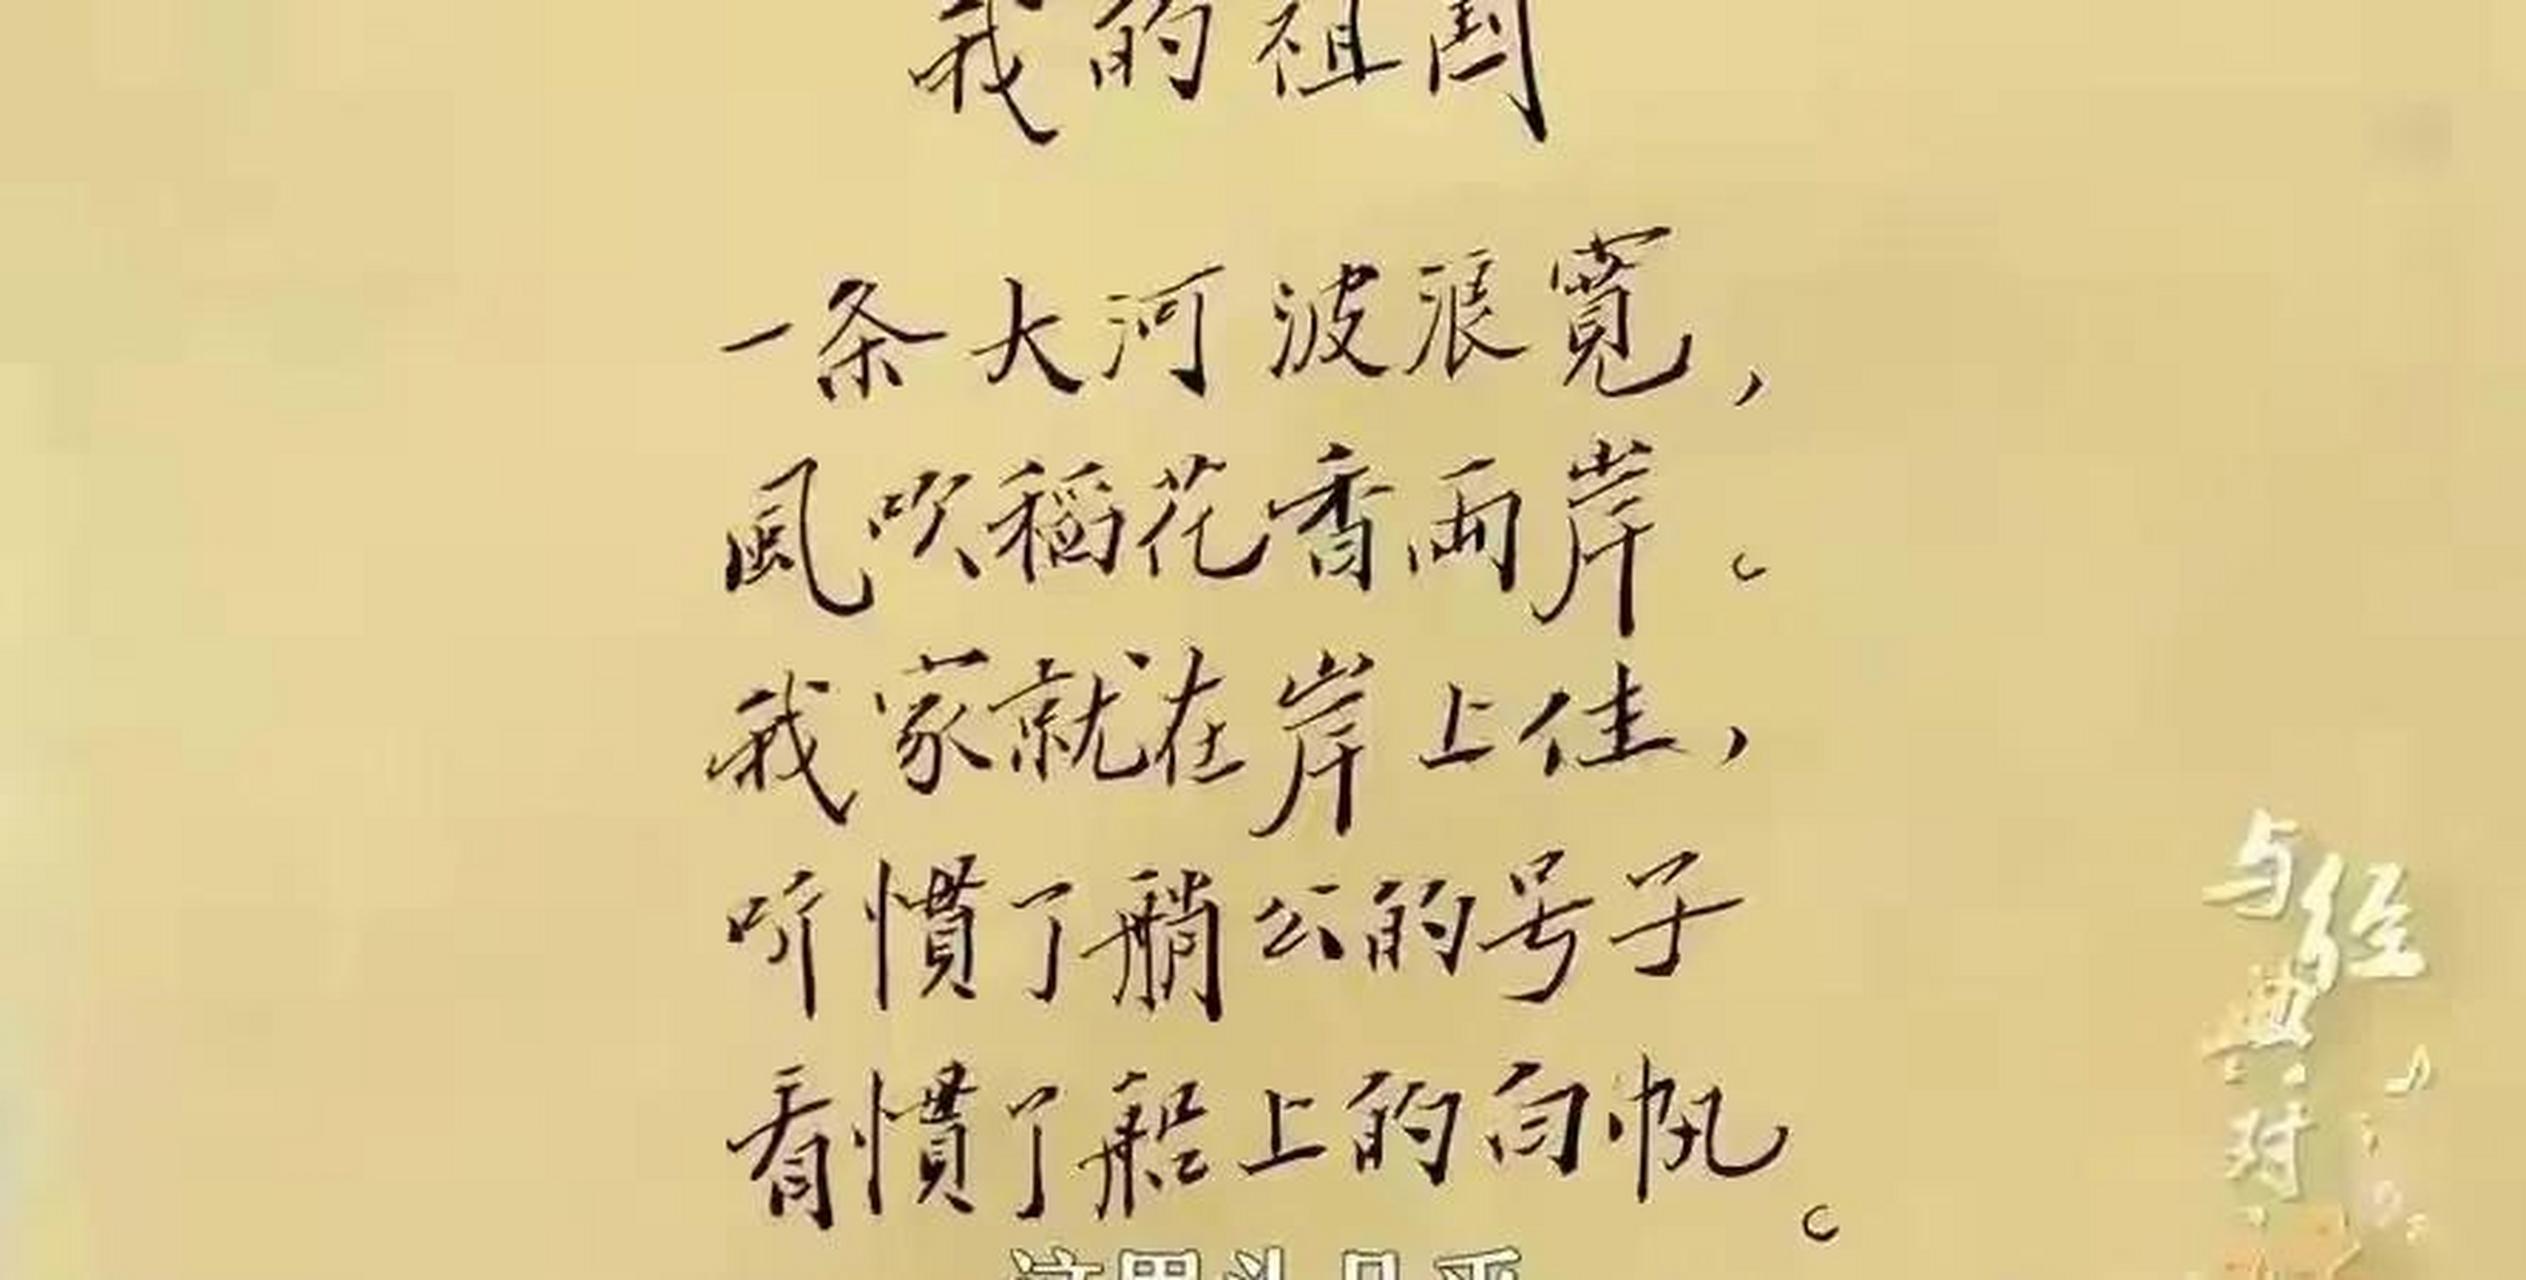 我的祖国
一条大河波浪寬，
風吹稻花香両岸。
我家就在岸上住，
听慣了艄公的号子
看慣了船上的白帆。
与经典对